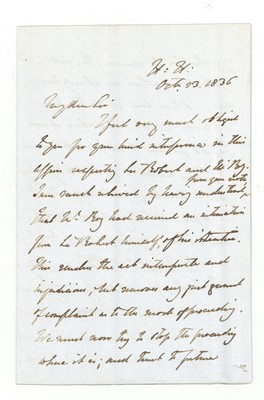 H: H:
Oct: 23. 1836
My dear Sir
I feel very much obliged
to you for your kind interference in this
affair respecting Sir Robert and Mr. Roy.
I am much relieved by having understood, from your note
that Mr. Roy had received an intimation
from Sir Robert himself, of his intention.
This renders the act intemperate and
injudicious, but removes any just ground
of complaint as to the mode of proceeding.
We must now try to stop the proceeding
where it is; and trust to future